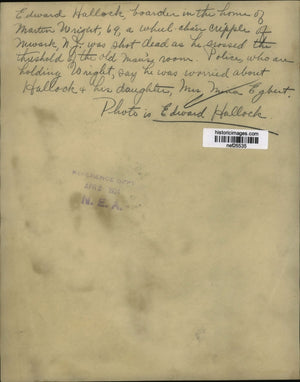 Edward Hallock, boarder in the home of
Martin Wright, 69, a wheel chair cripple of
Newark, N.J. was shot dead as he crossed the
threshold of the old man's room. Police, who are
holding Wright, say he was worried about
Hallock & his daughter, Mrs. Egbert.
Photo is Edward Hallock
historicimages.com
nef26535
REFERENCE DEPT
N.E.A.